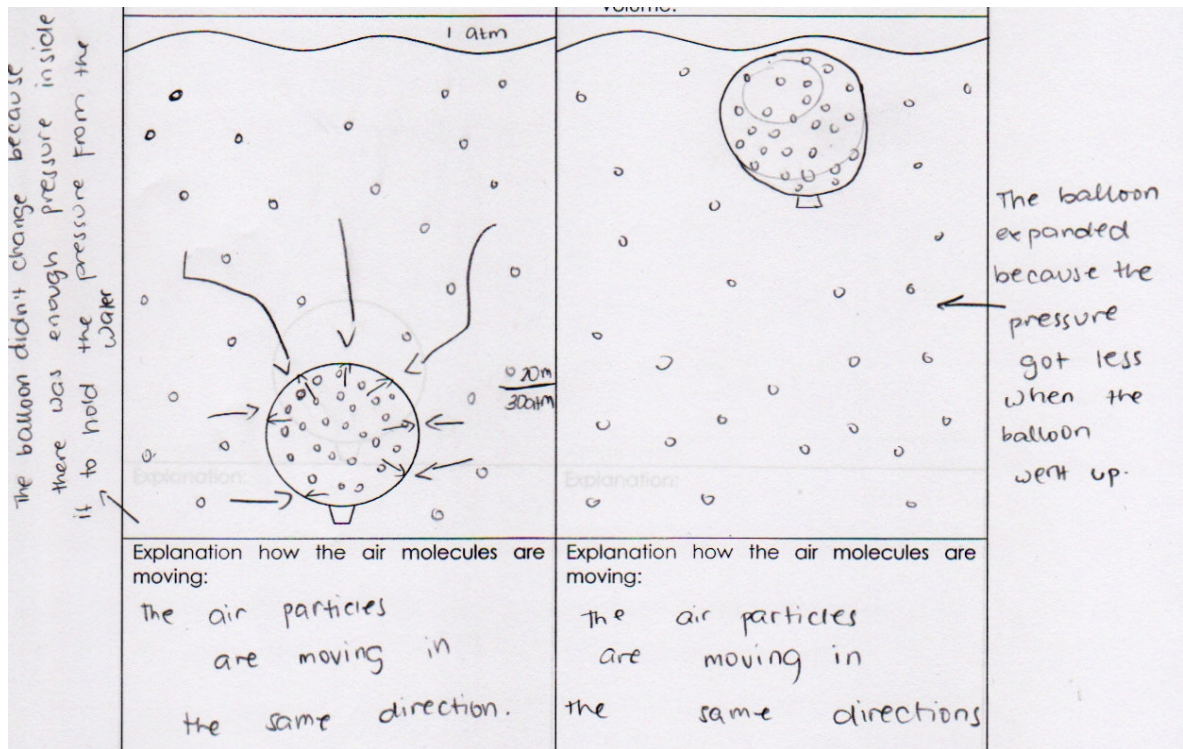 volume.
1 atm
The balloon didn't change because
there was enough pressure inside
it to hold the pressure from the
water
20m
30atm
The balloon
expanded
because the
pressure
got less
when the
balloon
went up.
Explanation:
Explanation:
Explanation how the air molecules are
moving:
The air particles
are moving in
the same direction.
Explanation how the air molecules are
moving:
The air particles
are moving in
the same directions